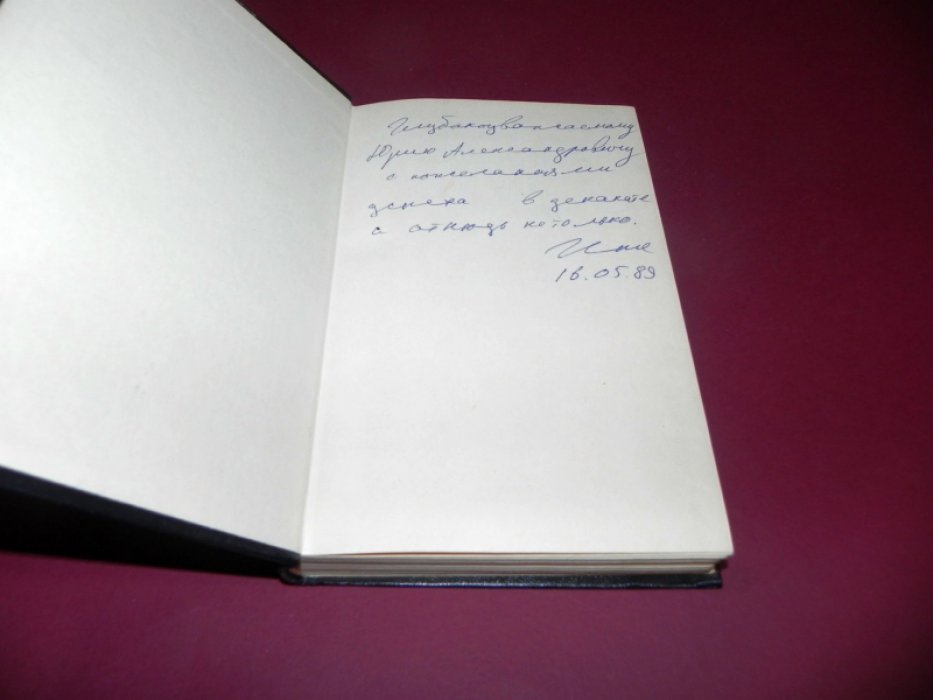 Глубокоуважаемому
Юрию Александровичу
с пожеланиями
успеха в деканате
и отнюдь не только.
16.05.89